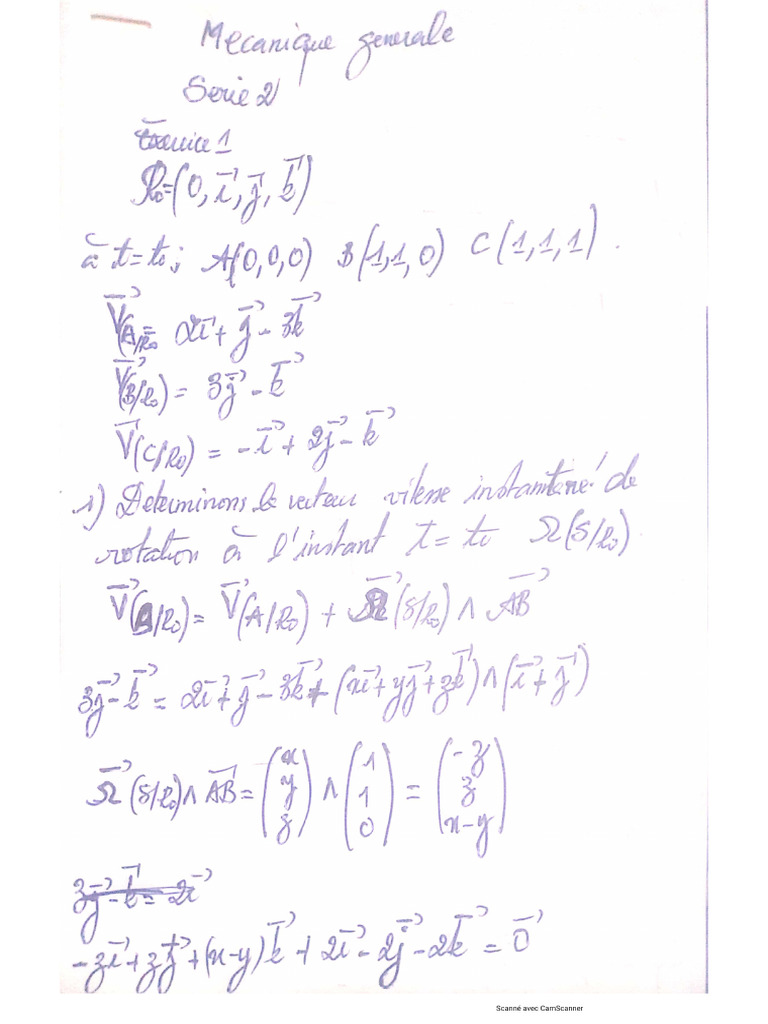 Mecanique generale
Serie 2
Exercice 1
R₀=(0, i⃗, j⃗, k⃗)
à t=t₀; A(0,0,0) B(1,1,0) C(1,1,1).
V⃗(A/R₀ = 2i⃗ + j⃗ - 3k⃗
V⃗(B/R₀) = 3j⃗ - k⃗
V⃗(C/R₀) = -i⃗ + 2j⃗ - k⃗
1) Determinons le vecteur vitesse instantané de
rotation à l'instant t = t₀ Ω(S/R₀)
V⃗(B/R₀) = V⃗(A/R₀) + Ω⃗(S/R₀) ∧ AB⃗
3j⃗ - k⃗ = 2i⃗ + j⃗ - 3k⃗ + (xi⃗ + yj⃗ + zk⃗) ∧ (i⃗ + j⃗)
Ω⃗(S/R₀) ∧ AB⃗ = (x y z) ∧ (1 1 0) = (-z z x-y)
3j⃗ - k⃗ = 2i⃗
-zi⃗ + zj⃗ + (x-y)k⃗ + 2i⃗ - 2j⃗ - 2k⃗ = 0⃗
Scanné avec CamScanner